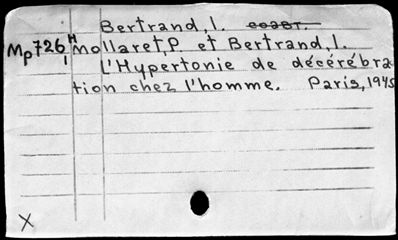 Bertrand, I. соавт.
Mp726 H Mollaret, P. et Bertrand, I.
1 L'Hypertonie de décérébra-
tion chez l'homme. Paris, 1945
X